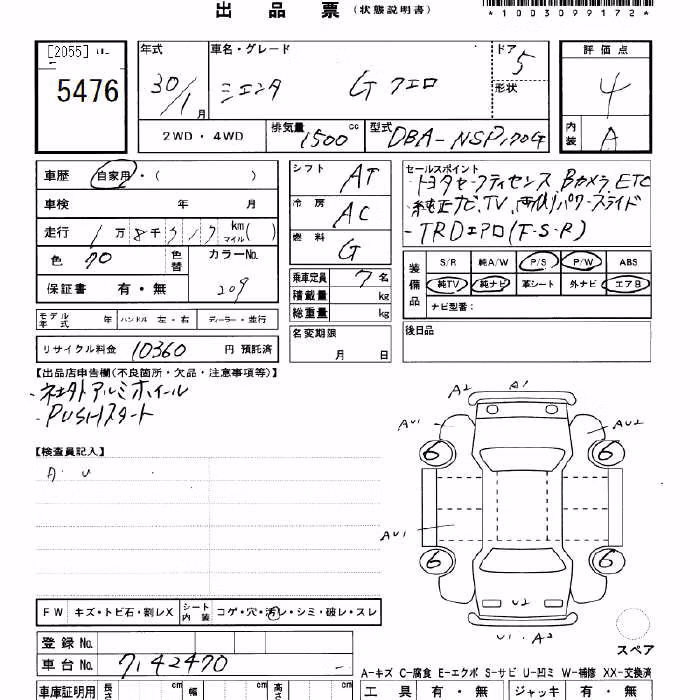 出品票 (状態説明書)
*1003099172*
[2055]
5476
年式 30/1月
車名・グレード シエンタ G クエロ
ドア 5
形状
評価点 4
内装 A
2WD・4WD
排気量 1500 cc
型式 DBA-NSP170G
車歴 自家用・( )
車検 年 月
走行 1万8千 km( ) マイル
色 クロ 色替 カラーNo. 209
保証書 有・無
シフト AT
冷房 AC
燃料 G
乗車定員 7名
積載量 kg
総重量 kg
名変期限 月 日
セールスポイント
・トヨタセーフティセンス、Bカメラ、ETC
・純正ナビ、TV、両側パワースライド
・TRDエアロ(F・S・R)
装備品
S/R 純A/W P/S P/W ABS
純TV 純ナビ 革シート 外ナビ エアB
ナビ型番:
後日品
モデル年式 年 ハンドル 左・右 ディーラー・並行
リサイクル料金 10360 円 預託済
【出品店申告欄(不良箇所・欠品・注意事項等)】
・社外アルミホイール
・PUSHスタート
【検査員記入】
A・U
A2 A1
AU1 AU2
6 6
AU1
6 6
U2
U1・A2
スペア
FW キズ・トビ石・割レX シート内装 コゲ・穴・汚レ・シミ・破レ・スレ
登録No.
車台No. 7142470
A-キズ C-腐食 E-エクボ S-サビ U-凹ミ W-補修 XX-交換済
車庫証明用 長さ cm 幅 cm 高さ cm
工具 有・無 ジャッキ 有・無